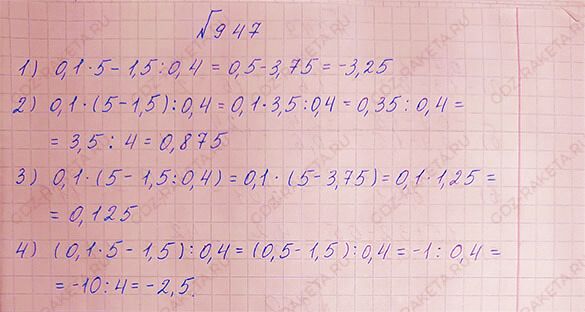 №947
1) 0,1·5-1,5:0,4=0,5-3,75=-3,25
2) 0,1·(5-1,5):0,4=0,1·3,5:0,4=0,35:0,4=
=3,5:4=0,875
3) 0,1·(5-1,5:0,4)=0,1·(5-3,75)=0,1·1,25=
=0,125
4) (0,1·5-1,5):0,4=(0,5-1,5):0,4=-1:0,4=
=-10:4=-2,5.
GDZ-RAKETA.RU